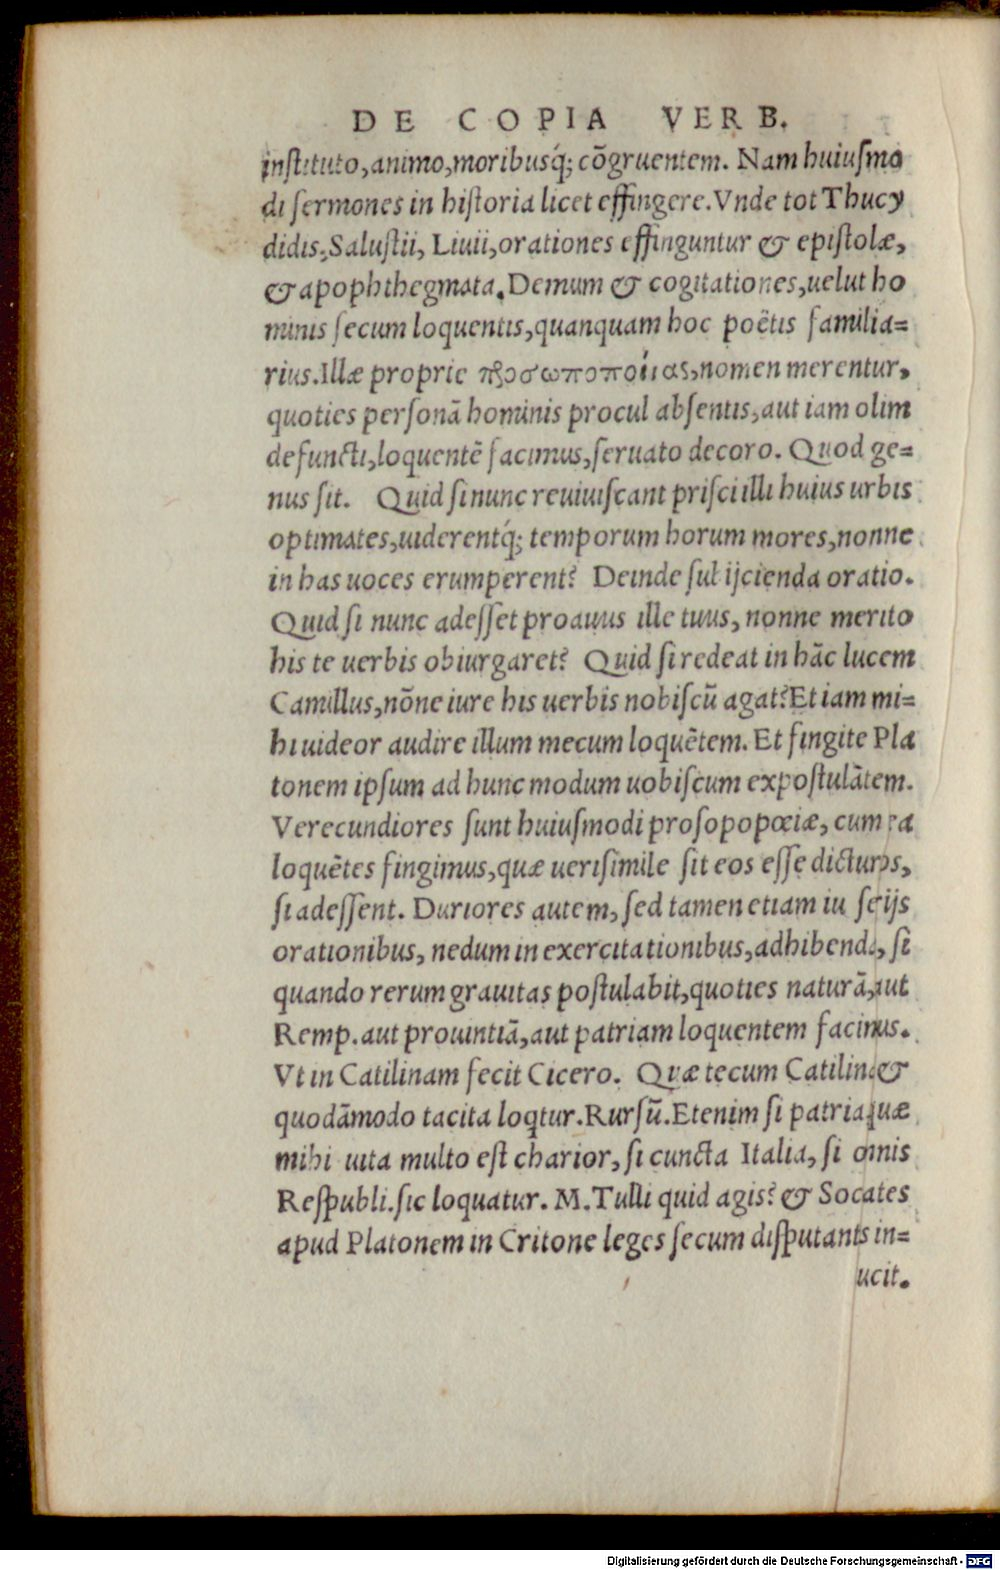 DE COPIA VERB.
instituto, animo, moribusq́; cõgruentem. Nam huiusmo
di sermones in historia licet effingere. Vnde tot Thucy
didis, Salustii, Liuii, orationes effinguntur & epistolæ,
& apophthegmata. Demum & cogitationes, uelut ho
minis secum loquentis, quanquam hoc poëtis familia=
rius. Illæ proprie προσωποποιίας, nomen merentur,
quoties personā hominis procul absentis, aut iam olim
defuncti, loquentē facimus, seruato decoro. Quod ge=
nus sit. Quid si nunc reuiuiscant prisci illi huius urbis
optimates, uiderentq́; temporum horum mores, nonne
in has uoces erumperent? Deinde subijcienda oratio.
Quid si nunc adesset proauus ille tuus, nonne merito
his te uerbis obiurgaret? Quid si redeat in hāc lucem
Camillus, nōne iure his uerbis nobiscū agat? Et iam mi=
hi uideor audire illum mecum loquētem. Et fingite Pla
tonem ipsum ad hunc modum uobiscum expostulātem.
Verecundiores sunt huiusmodi prosopopœiæ, cum ea
loquētes fingimus, quæ uerisimile sit eos esse dicturos,
si adessent. Duriores autem, sed tamen etiam in serijs
orationibus, nedum in exercitationibus, adhibendæ, si
quando rerum grauitas postulabit, quoties naturā, aut
Remp. aut prouintiā, aut patriam loquentem facimus.
Vt in Catilinam fecit Cicero. Quæ tecum Catilina &
quodāmodo tacita loqtur. Rursū. Etenim si patria quæ
mihi uita multo est charior, si cuncta Italia, si omnis
Respubli. sic loquatur. M. Tulli quid agis? & Socates
apud Platonem in Critone leges secum disputants in=
ucit.
Digitalisierung gefördert durch die Deutsche Forschungsgemeinschaft - DFG